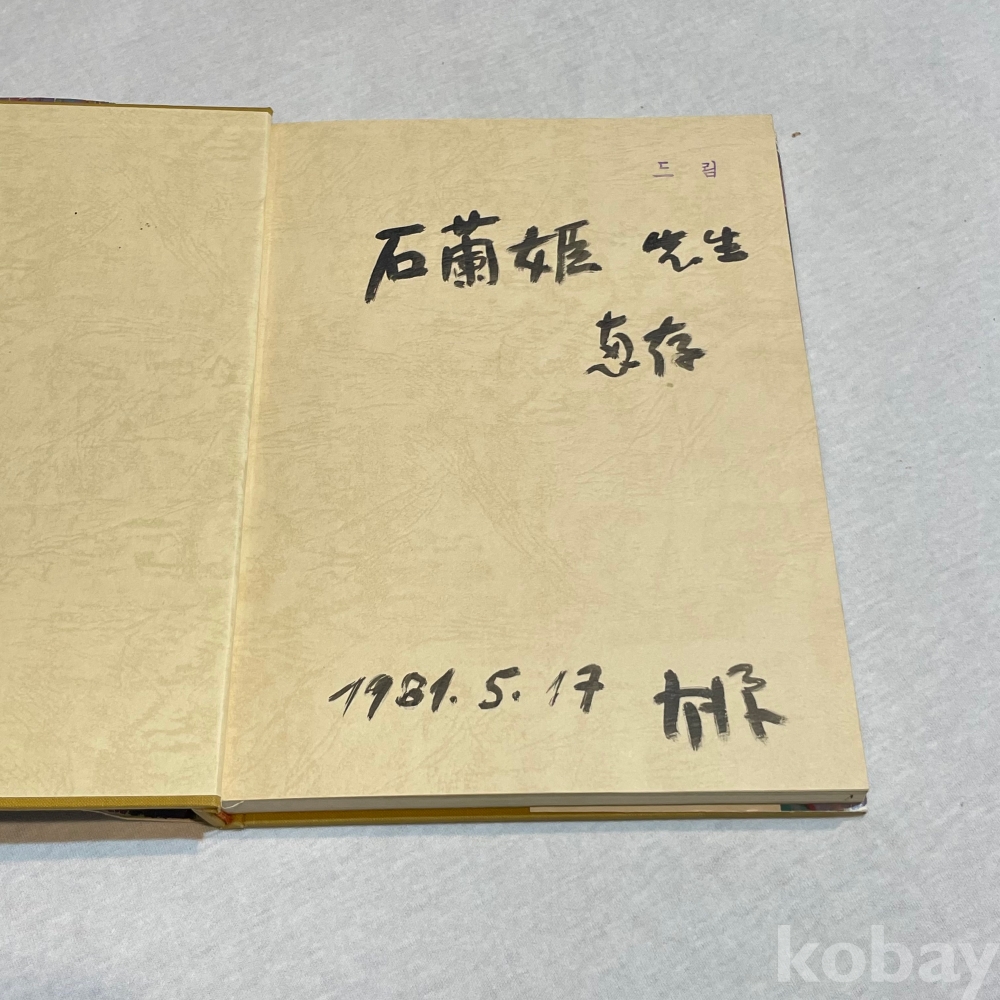 드림
石蘭姬 先生
惠存
1981. 5. 17
kobay